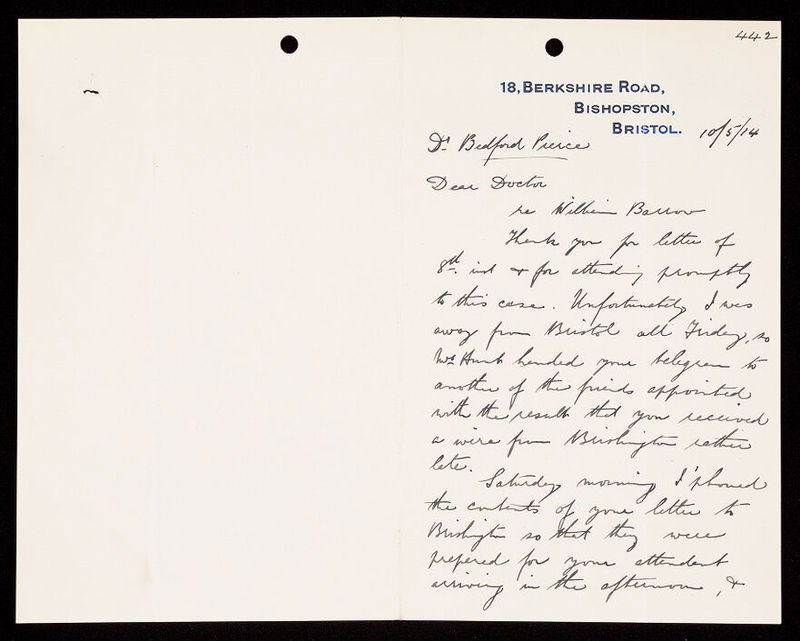 442
18, BERKSHIRE ROAD,
BISHOPSTON,
BRISTOL.
10/5/14
Dr Bedford Pierce
Dear Doctor
re William Barrow
Thank you for letter of
8th. inst & for attending promptly
to this case. Unfortunately I was
away from Bristol all Friday, so
Mrs Hunt handed your telegram to
another of the friends appointed
with the result that you received
a wire from Brislington rather
late.
Saturday morning I 'phoned
the contents of your letter to
Brislington so that they were
prepared for your attendant
arriving in the afternoon, &